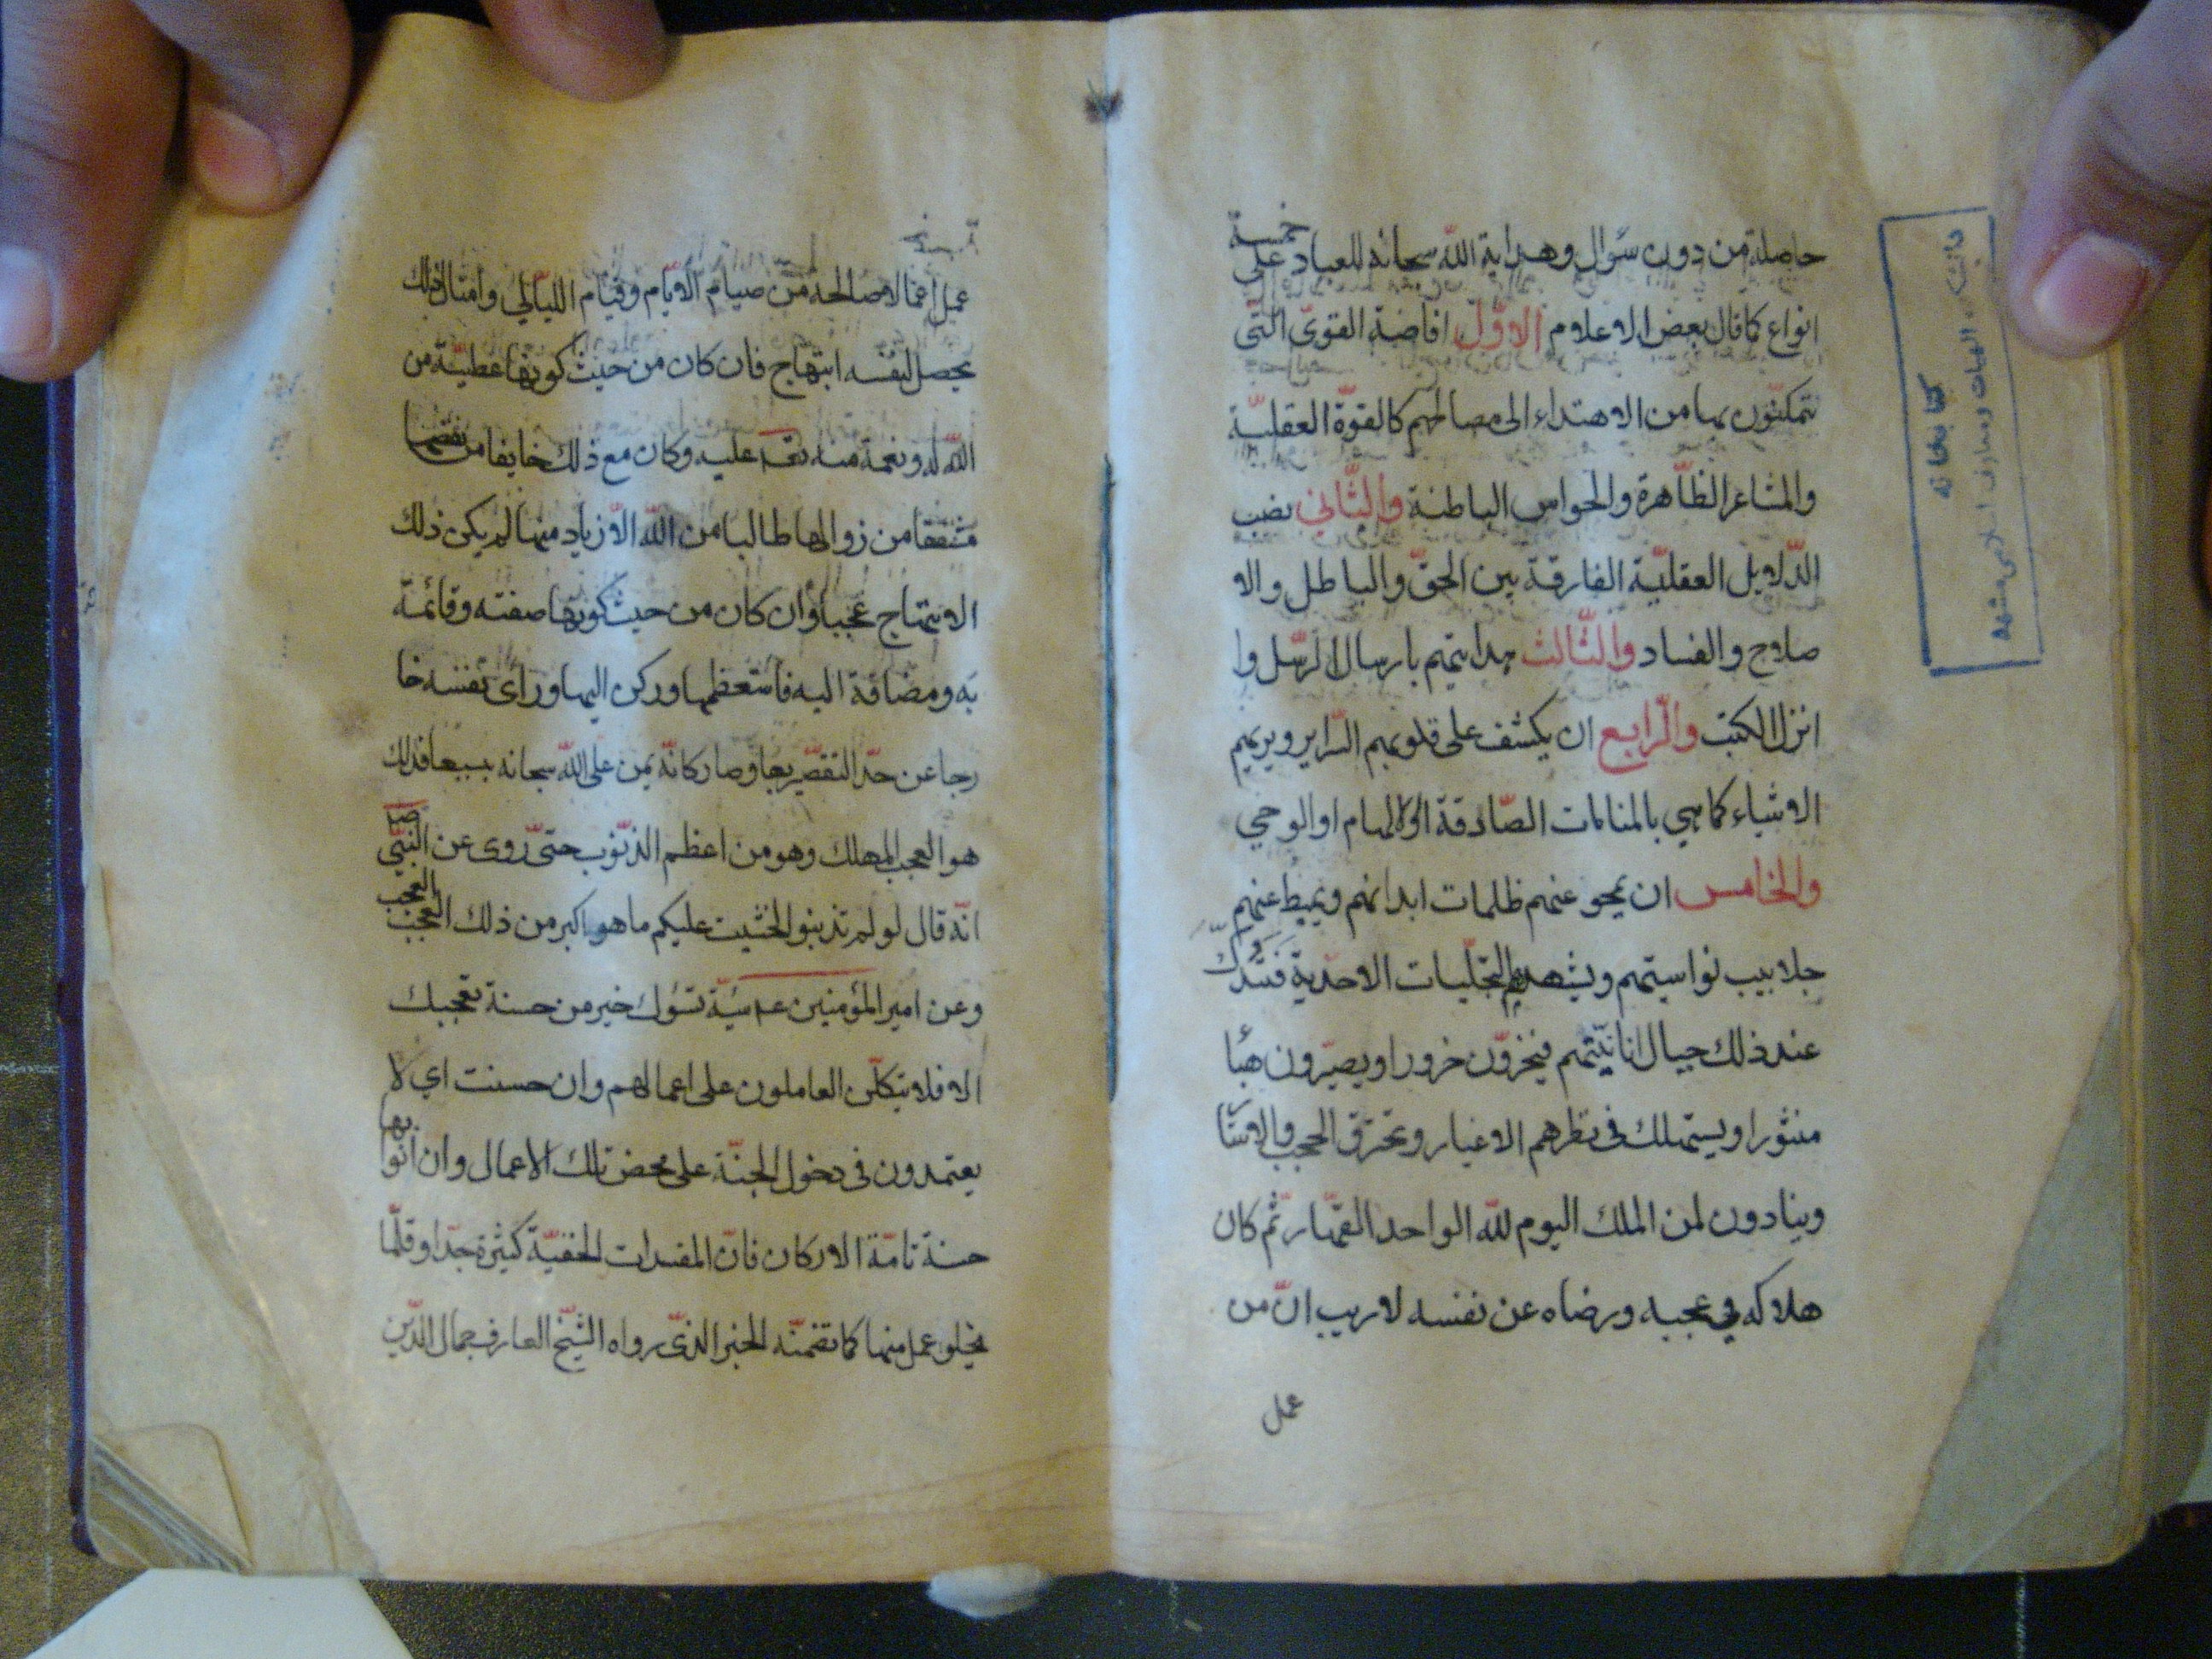 حاصلة من دون سؤال وهداية الله سبحانه للعباد على خمسة
انواع كما قال بعض الاعلام الاوّل افاضة القوىّ الّتى
يتمكنّون بها من الاهتداء الى مصالحهم كالقوّة العقليّة
والمشاعر الظّاهرة والحواس الباطنة والثّاني نصب
الدّلايل العقليّة الفارقة بين الحقّ والباطل والا
صلاح والفساد والثّالث هدايتهم بارسال الرّسل وا
انزل الكتب والرّابع ان يكشف على قلوبهم السّراير ويريهم
الاشياء كما هي بالمنامات الصّادقة او الالهام او الوحي
والخامس ان يمحو عنهم ظلمات ابدانهم ويميط عنهم
جلابيب نواسيتهم ويشهدهم التجلّيات الاحدّية فتندكّ
عند ذلك جبال انانيّتهم فيخرّون خرورا ويصيرون هبٔا
منثورا ويستهلك فى نظرهم الاغيار وتحترق الحجب والاستا
وينادون لمن الملك اليوم لله الواحد القهّار ثم كان
هلاكه في عجبه ورضاه عن نفسه لاريب انّ من
عمل
عمل اعمالا صالحة من صيام الايّام وقيام الليّالي وامثال ذلك
يحصل لنفسه ابتهاج فان كان من حيث كونها عطيّة من
الله له ونعمة منه تعـ عليه وكان مع ذلك خايفا من نقصها
مشفقا من زوالها طالبا من الله الازياد منها لم يكن ذلك
الابتهاج عجبا وان كان من حيث كونها صفته وقائمة
به ومضافة اليه فاستعظمها وركن اليها وراى نفسه خا
رجا عن حدّ التقصير بها وصار كانّه يمن على الله سبحانه بسببها فذلك
هو العجب المهلك وهو من اعظم الذنّوب حتىّ روى عن النبّي ص
انّه قال لو لم تذنبوا لخشيت عليكم ما هو اكبر من ذلك العجب العجب
وعن امير المؤمنين عـ سيّئة تسؤك خير من حسنة تعجبك
الا فلا يتكلّن العاملون على اعمالهم وان حسنت اي لا
يعتمدون فى دخول الجنّة على محض تلك الاعمال وان اتوا بها
حسنة تامّة الاركان فانّ المفسدات الخفيّة كثيرة جدّا وقلّما
يخلو عمل منها كما تضمّنه الخبر الذّى رواه الشيّخ العارف جمال الدّين
كتابخانه
دانشكده الهيات ومعارف اسلامى مشهد